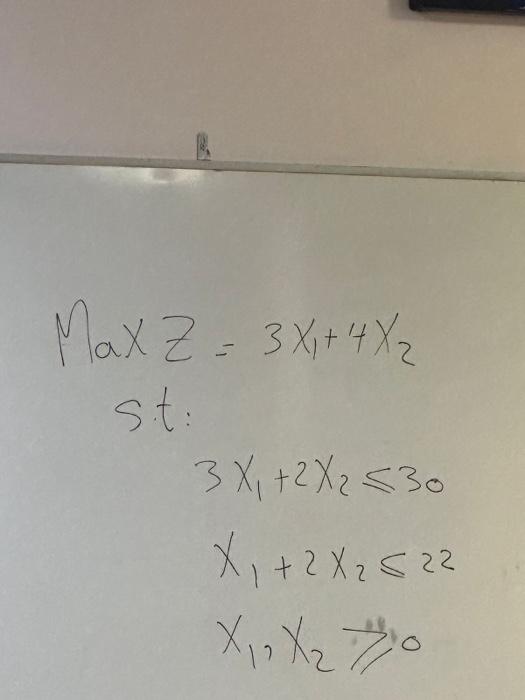 Max Z = 3X₁+4X₂
s.t:
3X₁+2X₂≤30
X₁+2X₂≤22
X₁,X₂≥0